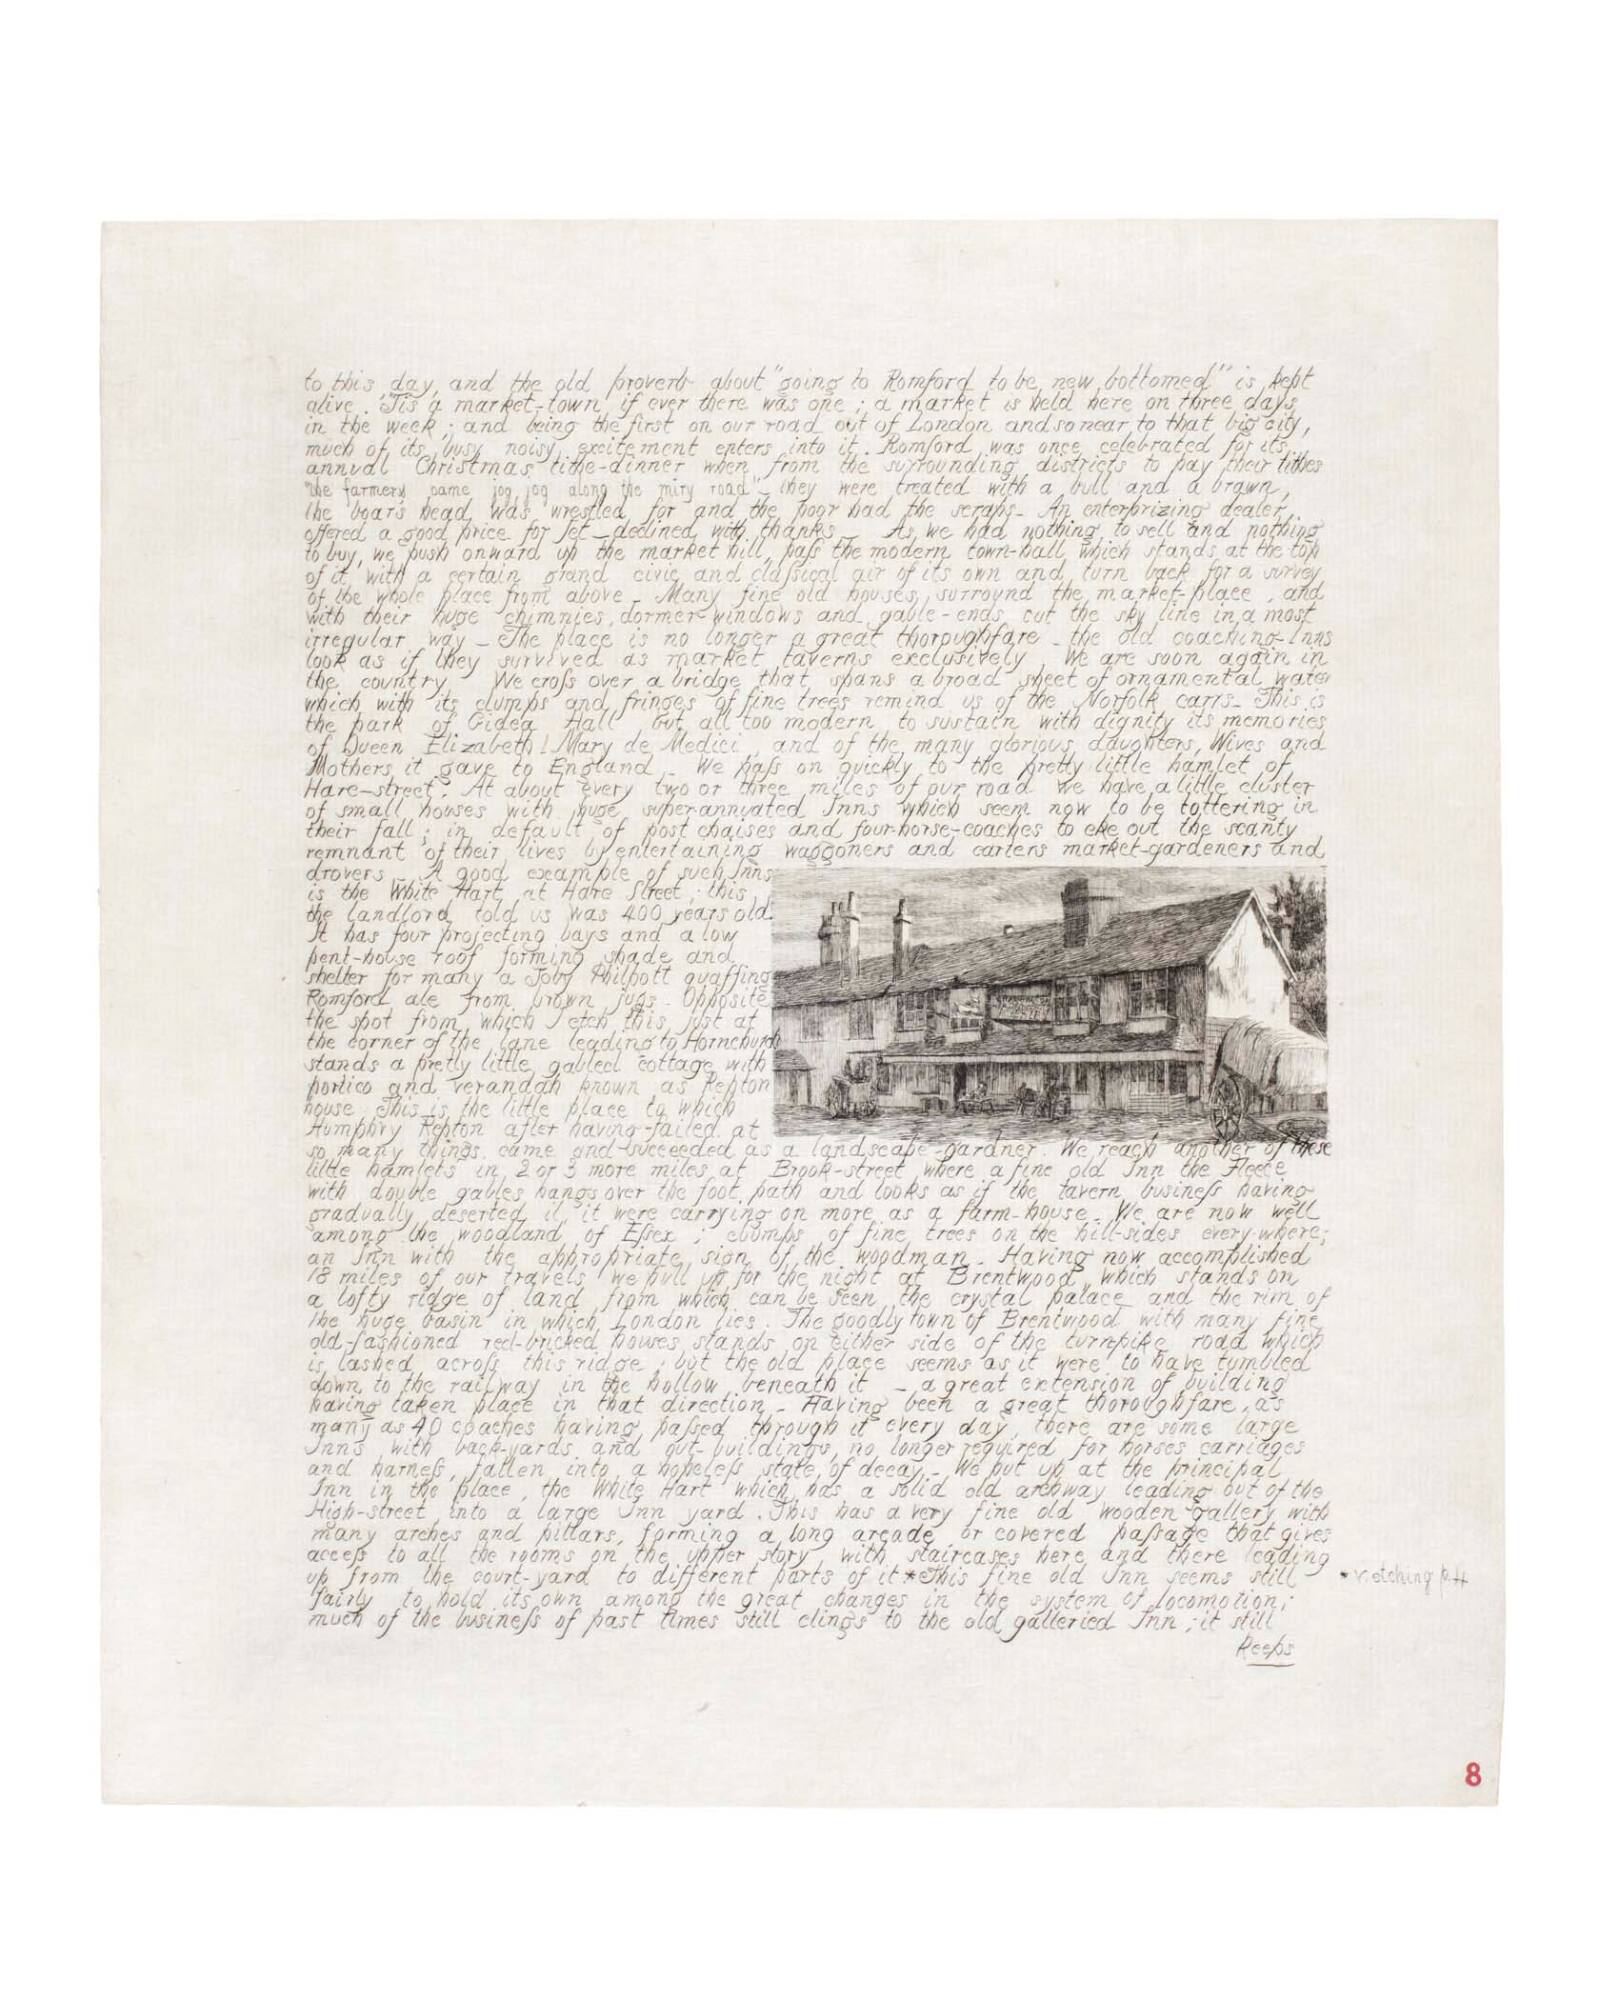 to this day, and the old proverb about "going to Romford to be new bottomed" is kept
alive. 'Tis a market-town if ever there was one; a market is held here on three days
in the week; and being the first on our road out of London and so near to that big city,
much of its busy noisy excitement enters into it. Romford was once celebrated for its
annual Christmas tithe-dinner when from the surrounding districts to pay their tithes
"the farmers came jog jog along the miry road" – they were treated with a bull and a brawn,
the boar's head was wrestled for and the poor had the scraps – An enterprizing dealer
offered a good price for Jet – declined with thanks – As we had nothing to sell and nothing
to buy, we push onward up the market hill, paſs the modern town-hall which stands at the top
of it with a certain grand civic and claſsical air of its own and turn back for a survey
of the whole place from above – Many fine old houses surround the market-place, and
with their huge chimnies, dormer-windows and gable-ends cut the sky line in a most
irregular way – The place is no longer a great thoroughfare – the old coaching-Inns
look as if they survived as market taverns exclusively. We are soon again in
the country We croſs over a bridge that spans a broad sheet of ornamental water
which with its clumps and fringes of fine trees remind us of the Norfolk carrs – This is
the park of Gidea Hall but all too modern to sustain with dignity its memories
of Queen Elizabeth! Mary de Medici, and of the many glorious daughters, Wives and
Mothers it gave to England – We paſs on quickly to the pretty little hamlet of
Hare-street. At about every two or three miles of our road we have a little cluster
of small houses with huge superannuated Inns which seem now to be tottering in
their fall; in default of post chaises and four-horse-coaches to eke out the scanty
remnant of their lives by entertaining waggoners and carters market-gardeners and
drovers – A good example of such Inns
is the White Hart at Hare Street; this
the landlord told us was 400 years old.
It has four projecting bays and a low
pent-house roof forming shade and
shelter for many a Toby Philpott quaffing
Romford ale from brown jugs. Opposite
the spot from which I etch this just at
the corner of the lane leading to Hornchurch
stands a pretty little gabled cottage with
portico and verandah known as Repton
house This is the little place to which
Humphry Repton after having-failed at
so many things came and succeeded as a landscape-gardner. We reach another of these
little hamlets in 2 or 3 more miles at Brook-street where a fine old Inn the Fleece
with double gables hangs over the foot path and looks as if the tavern busineſs having
gradually deserted it, it were carrying on more as a farm-house. We are now well
among the woodland of Eſsex; clumps of fine trees on the hill-sides every-where;
an Inn with the appropriate sign of the woodman. Having now accomplished
18 miles of our travels we pull up for the night at Brentwood which stands on
a lofty ridge of land from which can be seen the crystal palace and the rim of
the huge basin in which London lies. The goodly town of Brentwood with many fine
old-fashioned red-bricked houses stands on either side of the turnpike road which
is lashed acroſs this ridge; but the old place seems as it were to have tumbled
down to the railway in the hollow beneath it – a great extension of building
having taken place in that direction – Having been a great thoroughfare, as
many as 40 coaches having paſsed through it every day, there are some large
Inns with back-yards and out-buildings, no longer required for horses carriages
and harneſs, fallen into a hopeleſs state of decay – We put up at the principal
Inn in the place, the White Hart which has a solid old archway leading out of the
High-street into a large Inn yard. This has a very fine old wooden gallery with
many arches and pillars, forming a long arcade or covered paſsage that gives
acceſs to all the rooms on the upper story with staircases here and there leading
up from the court-yard to different parts of it * This fine old Inn seems still
fairly to hold its own among the great changes in the system of locomotion;
much of the busineſs of past times still clings to the old galleried Inn; it still
Keeps
* v. etching p. H
8